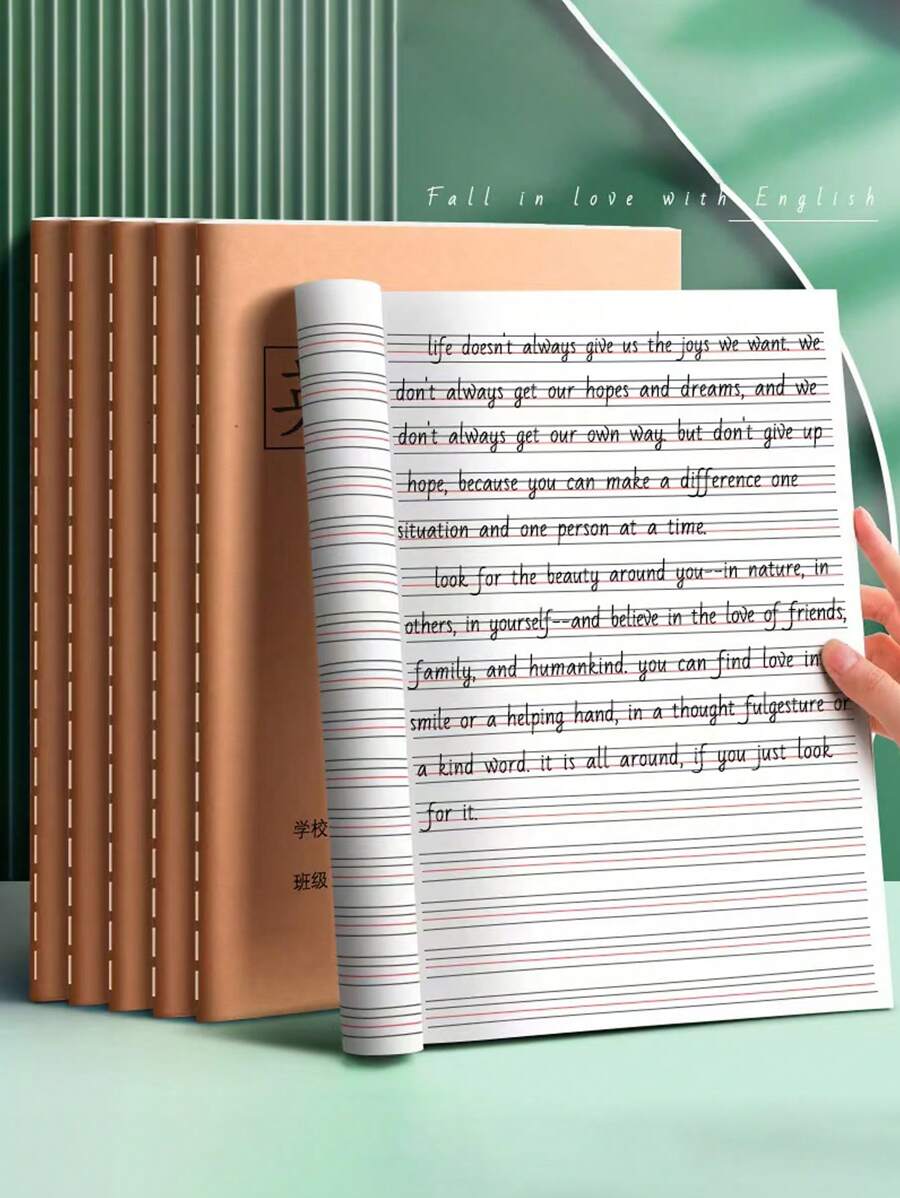 Fall in love with English
life doesn't always give us the joys we want. we
don't always get our hopes and dreams, and we
don't always get our own way. but don't give up
hope, because you can make a difference one
situation and one person at a time.
look for the beauty around you--in nature, in
others, in yourself--and believe in the love of friends,
family, and humankind. you can find love in
smile or a helping hand, in a thought fulgesture or
a kind word. it is all around, if you just look
for it.
学校
班级